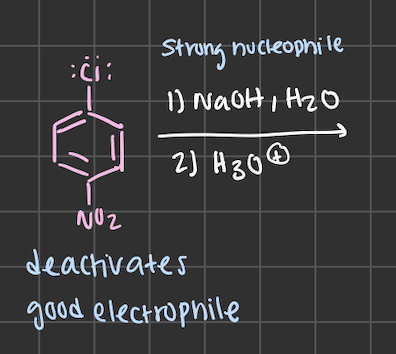 Strong nucleophile
:C̈l:
1) NaOH, H2O
2) H3O⊕
NO2
deactivates
good electrophile